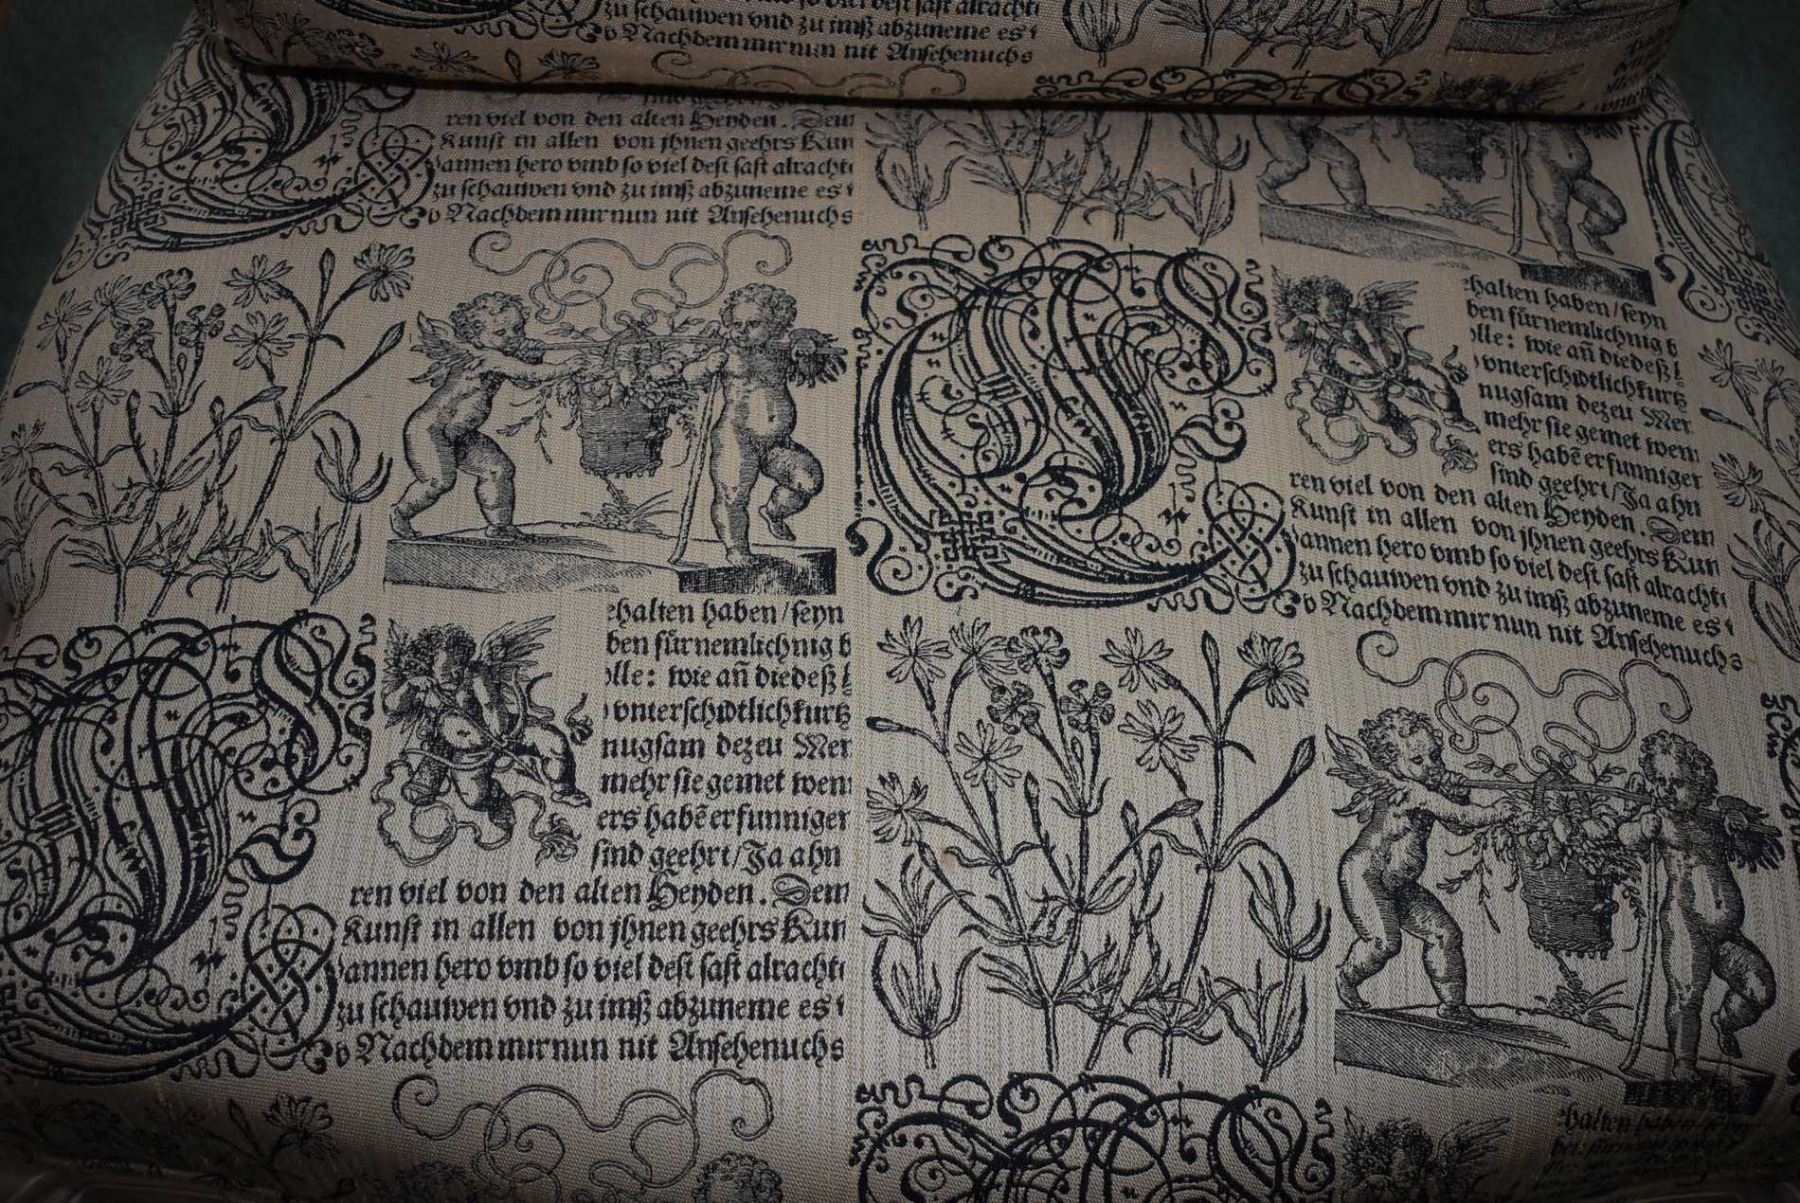 zu schauwen vnd zu imß abzuneme es
Nachdem mir nun nit Ansehenuchs
ren viel von den alten Heyden. Dem
Kunst in allen von jhnen geehrs Kun
annen hero vmb so viel dest fast alracht
zu schauwen vnd zu imß abzuneme es
Nachdem mir nun nit Ansehenuchs
ehalten haben/seyn
ben fürnemlichnig b
lle: wie auñ diedeß
vnterschidtlichkurtz
nugsam dezeu Mer
mehr sie gemet wen
ers habē erfunniger
sind geehrt/Ja ahn
ren viel von den alten Heyden. Dem
Kunst in allen von jhnen geehrs Kun
annen hero vmb so viel dest fast alracht
zu schauwen vnd zu imß abzuneme es
Nachdem mir nun nit Ansehenuchs
ehalten haben/seyn
ben fürnemlichnig b
lle: wie añ diedeß
vnterschidtlichkurtz
nugsam dezeu Mer
mehr sie gemet wen
ers habē erfunniger
sind geehrt/Ja ahn
ren viel von den alten Heyden. Dem
Kunst in allen von jhnen geehrs Kun
annen hero vmb so viel dest fast alracht
zu schauwen vnd zu imß abzuneme es
Nachdem mir nun nit Ansehenuchs
ehalten haben